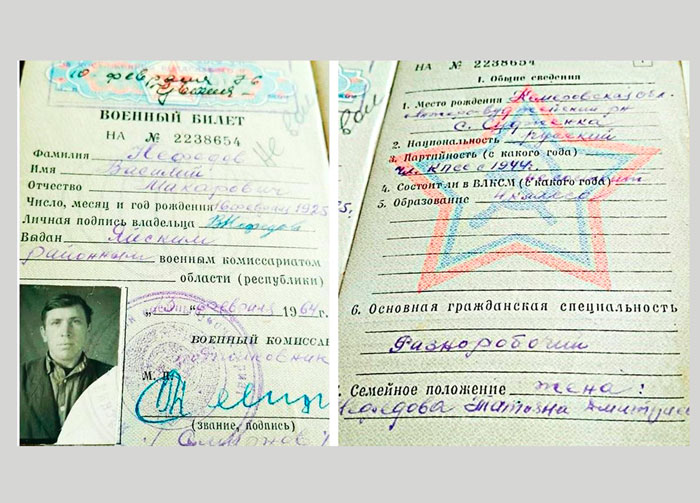 10 февраля 76
ВОЕННЫЙ БИЛЕТ
НА № 2238654
Фамилия Нефедов
Имя Василий
Отчество Макарович
Число, месяц и год рождения 16 февраля 1925
Личная подпись владельца ВНефедов
Выдан Яйским
районным военным комиссариатом
области (республики)
„5" февраля 1964 г.
ВОЕННЫЙ КОМИССА
подполковник
М. П.
(звание, подпись)
НА № 2238654
1. Общие сведения
1. Место рождения Кемеровская обл.
с.
2. Национальность русский
3. Партийность (с какого года)
чл. КПСС с 1944г.
4. Состоял ли в ВЛКСМ (с какого года)
5. Образование 4 класса
6. Основная гражданская специальность
Разнорабочий
Семейное положение жена:
Нефедова Татьяна